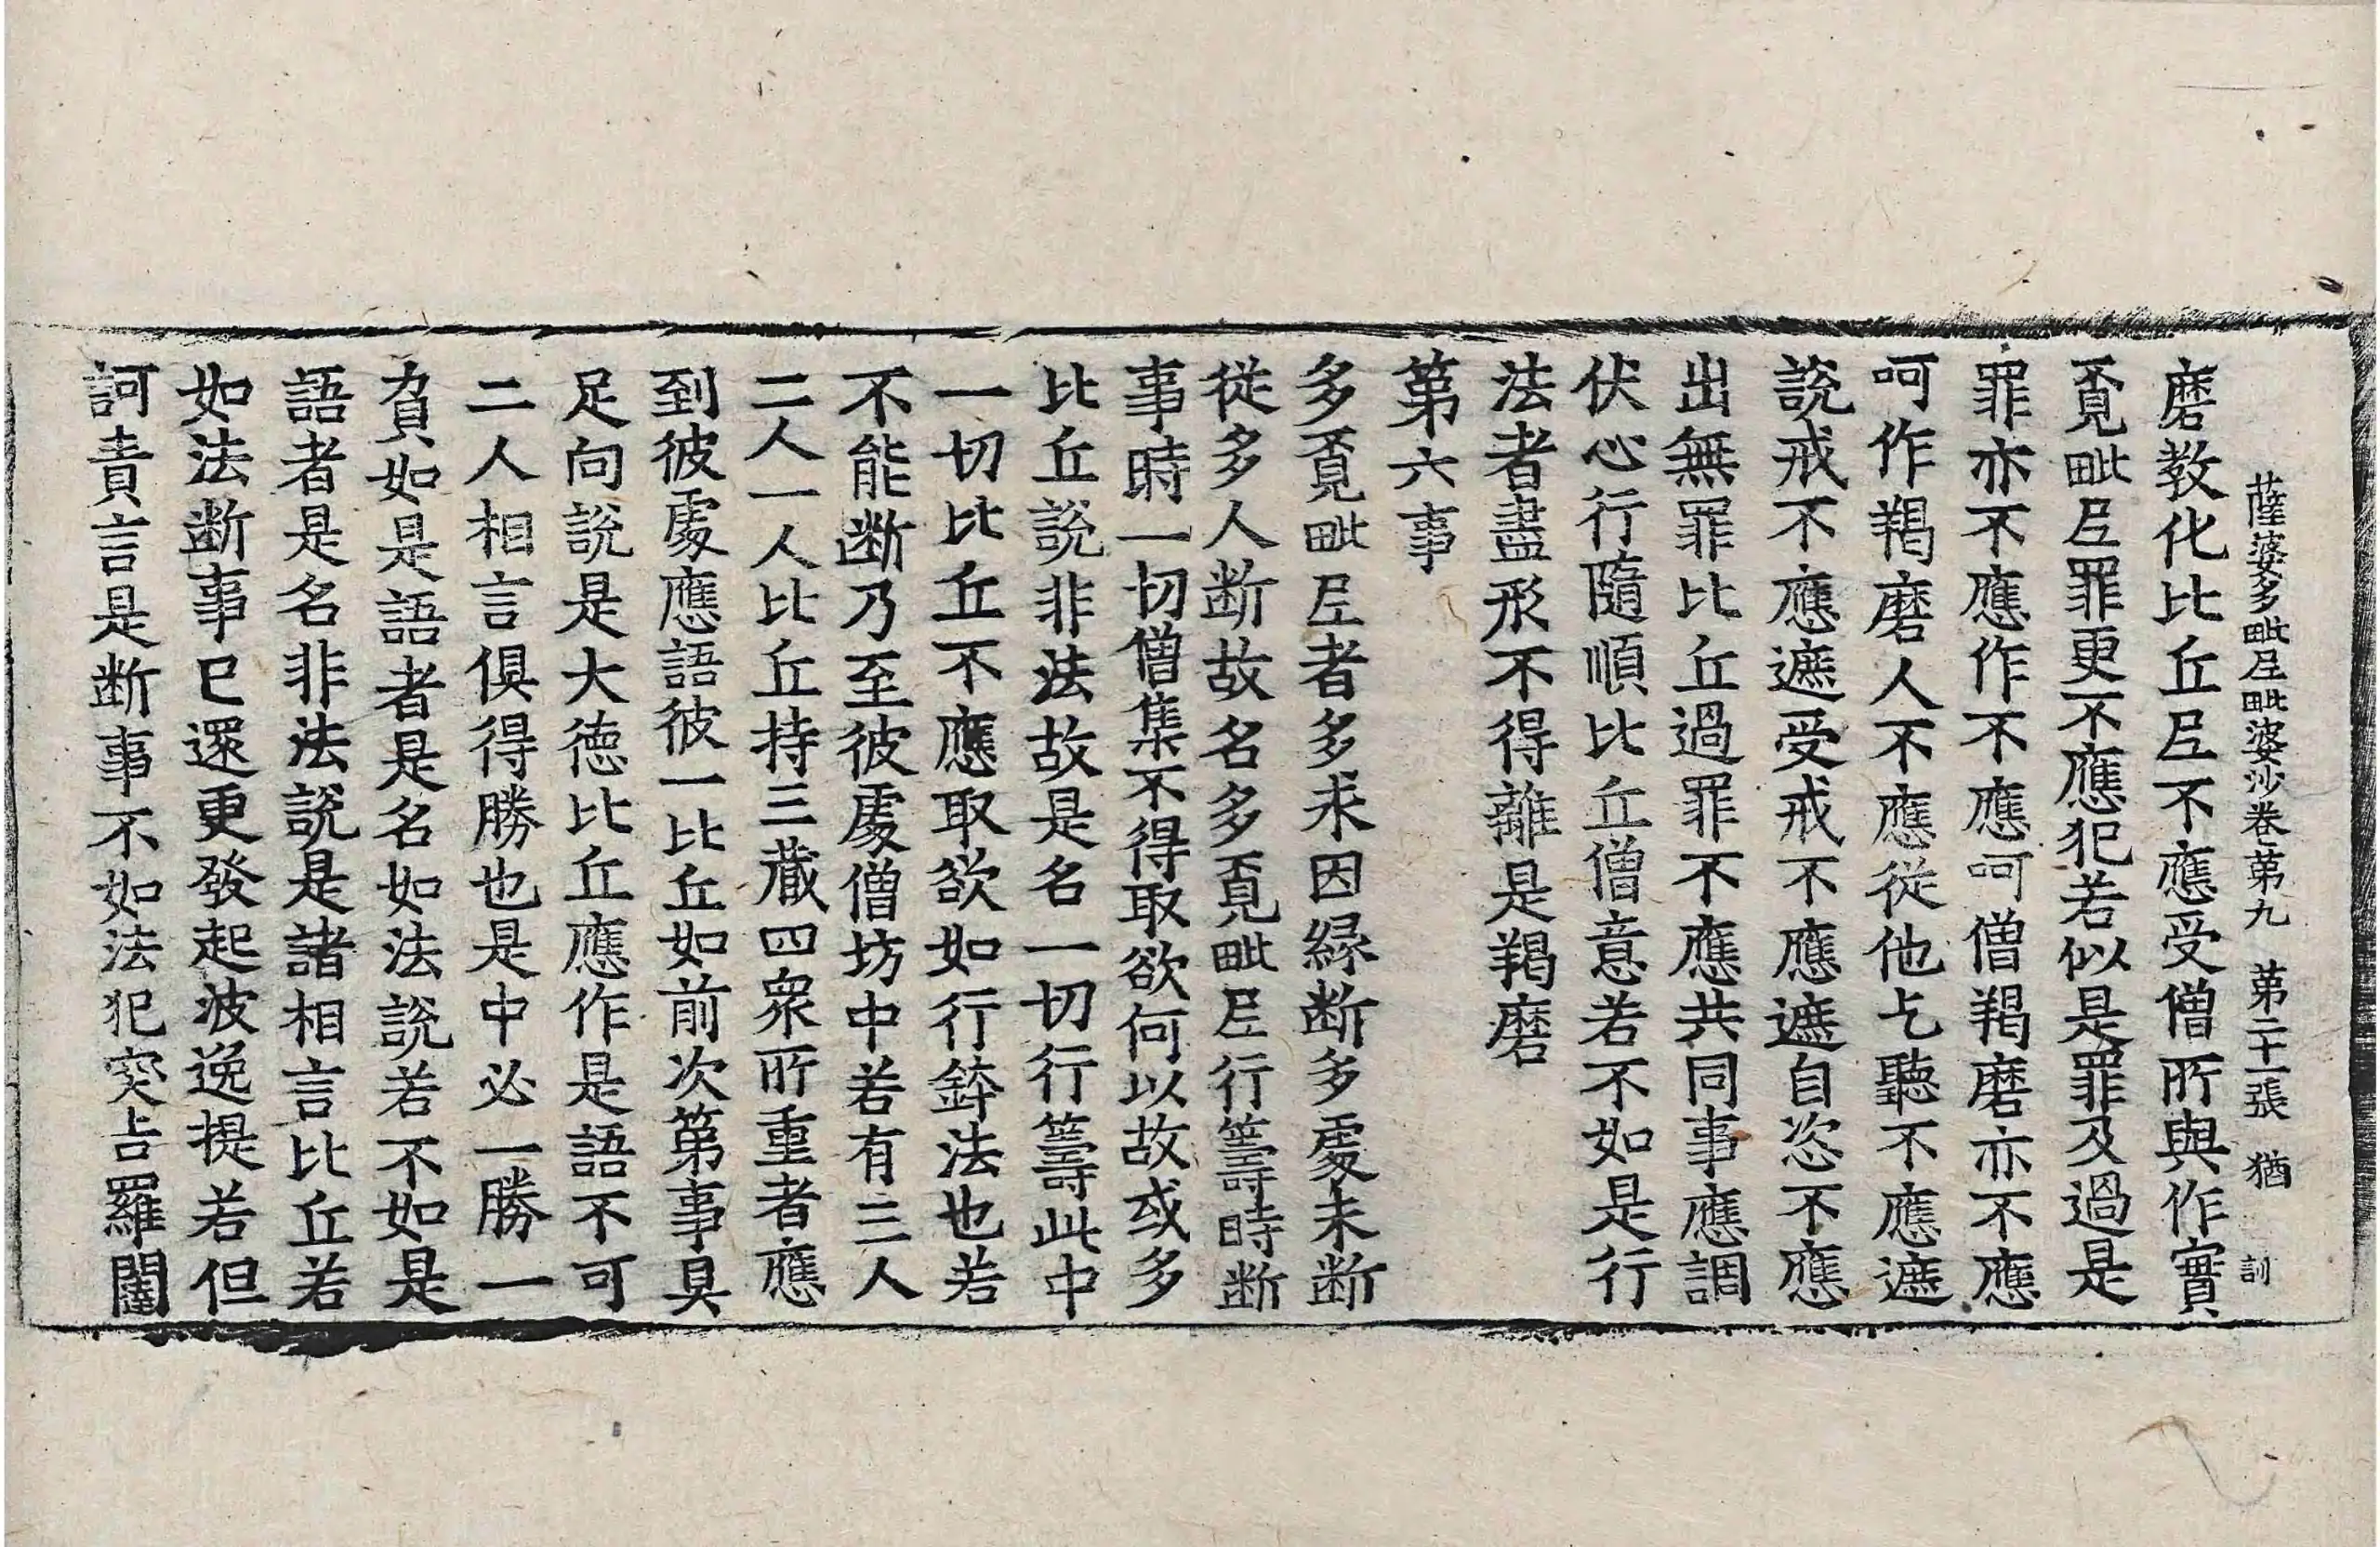 薩婆多毗尼毗婆沙卷第九　第二十一張　猶　訓
磨教化比丘尼不應受僧所與作實
覔毗尼罪更不應犯若似是罪及過是
罪亦不應作不應呵僧羯磨亦不應
呵作羯磨人不應從他乞聽不應遮
說戒不應遮受戒不應遮自恣不應
出無罪比丘過罪不應共同事應調
伏心行隨順比丘僧意若不如是行
法者盡形不得離是羯磨
第六事
多覔毗尼者多求因緣断多處未断
從多人断故名多覔毗尼行籌時断
事時一切僧集不得取欲何以故或多
比丘說非法故是名一切行籌此中
一切比丘不應取欲如行鉢法也若
不能断乃至彼處僧坊中若有三人
二人一人比丘持三藏四衆所重者應
到彼處應語彼一比丘如前次第事具
足向說是大德比丘應作是語不可
二人相言俱得勝也是中必一勝一
負如是語者是名如法說若不如是
語者是名非法說是諸相言比丘若
如法断事已還更發起波逸提若但
訶責言是断事不如法犯突吉羅闥